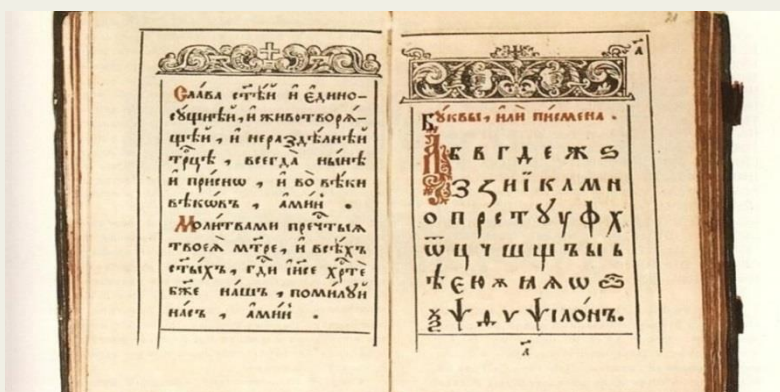 Сла́ва ст҃ѣ́й и҆ є҆дино-
сꙋ́щнѣй, и҆ животворѧ́-
щей, и҆ нераздѣ́лнѣй
тр҃цѣ, всегда̀ нн҃ѣ
и҆ при́снѡ, и҆ во̀ вѣ́ки
вѣкѡ́въ, а҆ми́нь.
Моли́твами преч҇тыѧ
твоеѧ̀ мт҃ре, и҆ всѣ́хъ
ст҃ы́хъ, гд҇и і҆и҃се хр҇тѐ
бж҃е на́шъ, поми́лꙋй
на́съ, а҆ми́нь.
Бꙋ́квы, и҆лѝ писмена̀.
А Б В Г Д Е Ж Ѕ
З И Ї К Л М Н
О П Р С Т Ꙋ У Ф Х
Ѿ Ц Ч Ш Щ Ъ Ы Ь
Ѣ Є Ю Ѫ Ꙗ Ѧ Ѡ
Ѯ Ѱ Ѳ Ѵ Ѱїло́нъ.